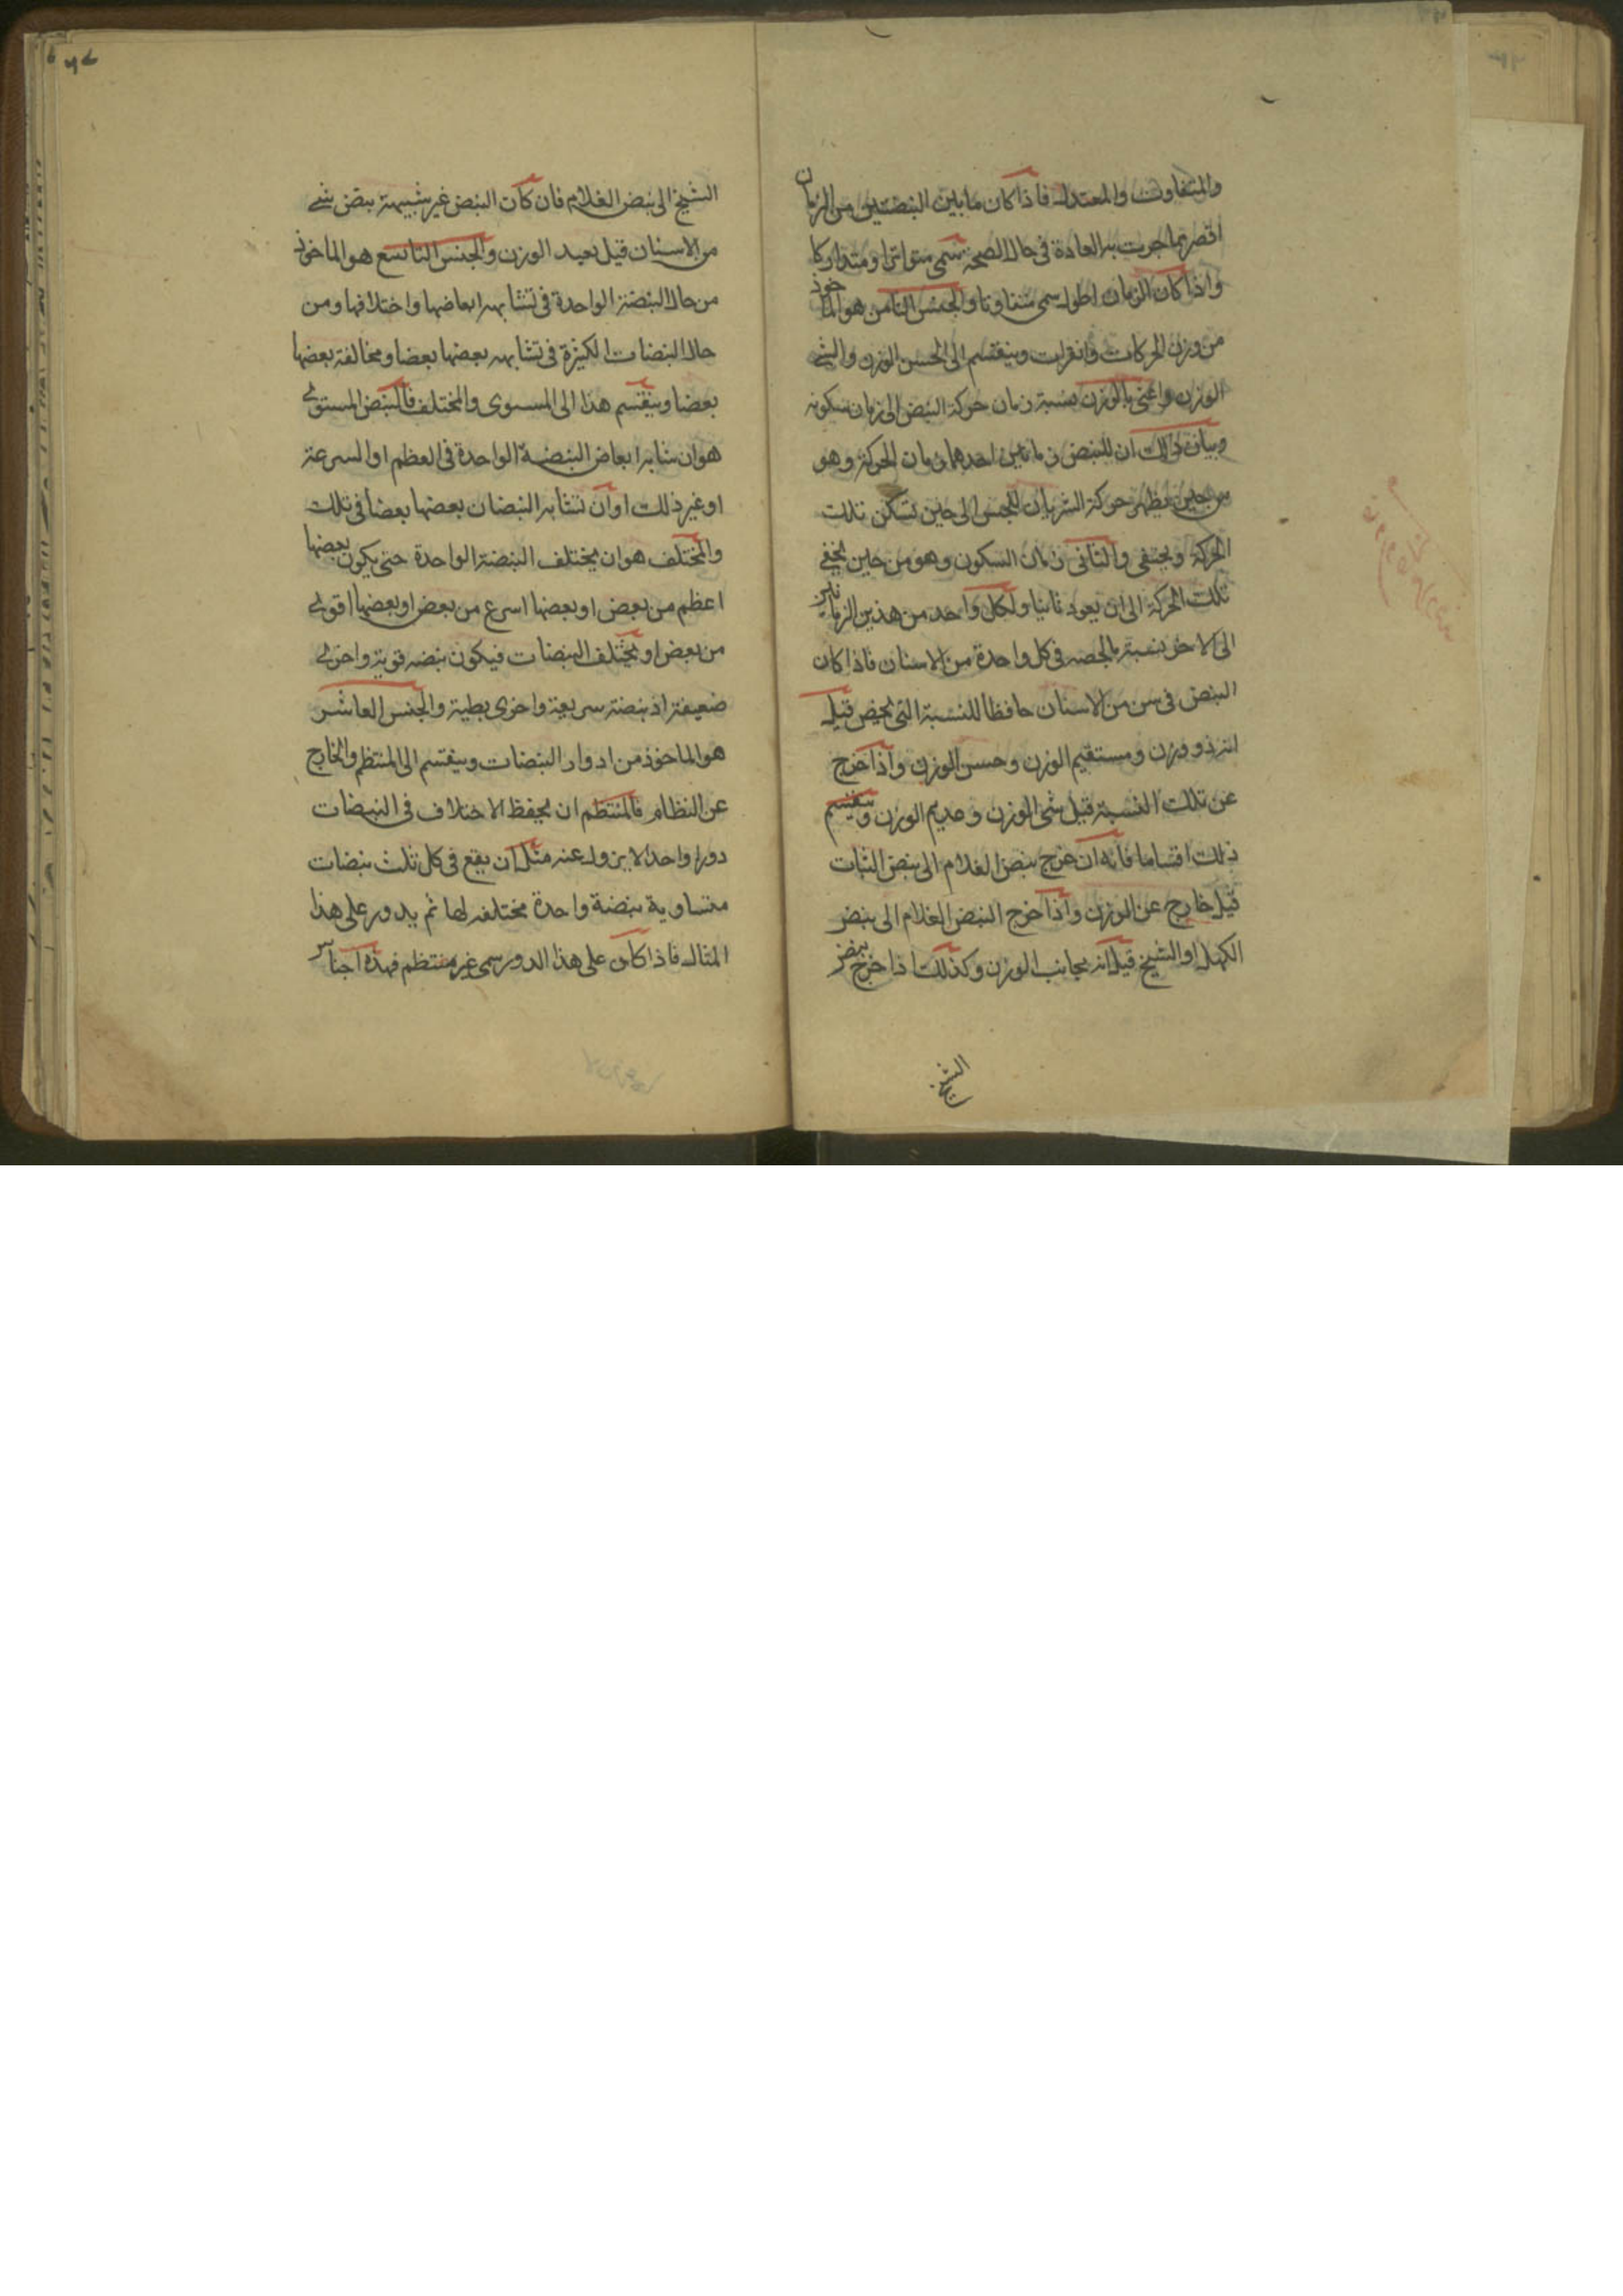 والمتفاوت والمعتدل فاذا كان ما بين النبضتين من الزمان
اقصر مما جرت به العادة فى حال الصحة سمى متواترا ومتداركا
واذا كان الزمان اطول سمى متفاوتا والجنس الثامن هو الماخوذ
من وزن الحركات وينقسم الى الحسن الوزن والسئ
الوزن واعنى بالوزن نسبة زمان حركة النبض الى زمان سكونه
وبيان ذلك ان للنبض زمانين احدهما زمان الحركة وهو
من حين يظهر حركة الشريان للمجس الى حين تسكن تلك
الحركة ويختفى والثانى زمان السكون وهو من حين يخفى
تلك الحركة الى ان يعود ثانيا ولكل واحد من هذين الزمانين
الى الاخر نسبة فى كل واحدة من الاسنان فاذا كان
النبض فى سن من الاسنان حافظا للنسبة التى تخصه قيل
انه ذو وزن ومستقيم الوزن وحسن الوزن واذا خرج
عن تلك النسبة قيل سئ الوزن وعديم الوزن وينقسم
ذلك اقساما فانه ان خرج نبض الغلام الى نبض الشاب
قيل خارج عن الوزن واذا خرج النبض الغلام الى نبض
الكهل او الشيخ قيل انه مجانب الوزن وكذلك اذا خرج نبض
الشيخ
الشيخ الى نبض الغلام فان كان النبض غير شبيهة بنبض شئ
من الاسنان قيل بعيد الوزن والجنس التاسع هو الماخوذ
من حال النبضة الواحدة فى تشابه ابعاضها واختلافها ومن
حال النبضات الكثيرة فى تشابه بعضها بعضا ومخالفة بعضها
بعضا وينقسم هذا الى المستوى والمختلف فالنبض المستوى
هو ان تشابه ابعاض النبضة الواحدة فى العظم او السرعة
او غير ذلك او ان تشابه النبضات بعضها بعضا فى تلك
والمختلف هو ان يختلف النبضة الواحدة حتى يكون بعضها
اعظم من بعض او بعضها اسرع من بعض او بعضها اقوى
من بعض او يختلف النبضات فيكون نبضة قوية واخرى
ضعيفة او نبضة سريعة واخرى بطية والجنس العاشر
هو الماخوذ من ادوار النبضات وينقسم الى المنتظم والخارج
عن النظام فالمنتظم ان يحفظ الاختلاف فى النبضات
دورا واحدا لا يزول عنه مثل ان يقع فى كل ثلث نبضات
متساوية نبضة واحدة مختلفة لها ثم يدور على هذا
المثال فاذا كان على هذا الدور سمى غير منتظم فهذه اجناس